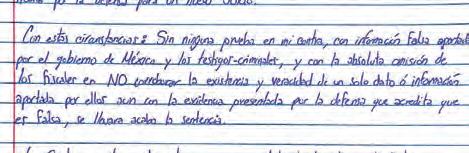 por la defensa para un nuevo juicio.
Con estas circunstancias: Sin ninguna prueba en mi contra, con información falsa aportada
por el gobierno de México y los testigos-criminales, y con la absoluta omisión de
los fiscales en NO corroborar la existencia y veracidad de un solo dato ó información
aportada por ellos aun con la evidencia presentada por la defensa que acredita que
es falsa, se llevará acabo la sentencia.